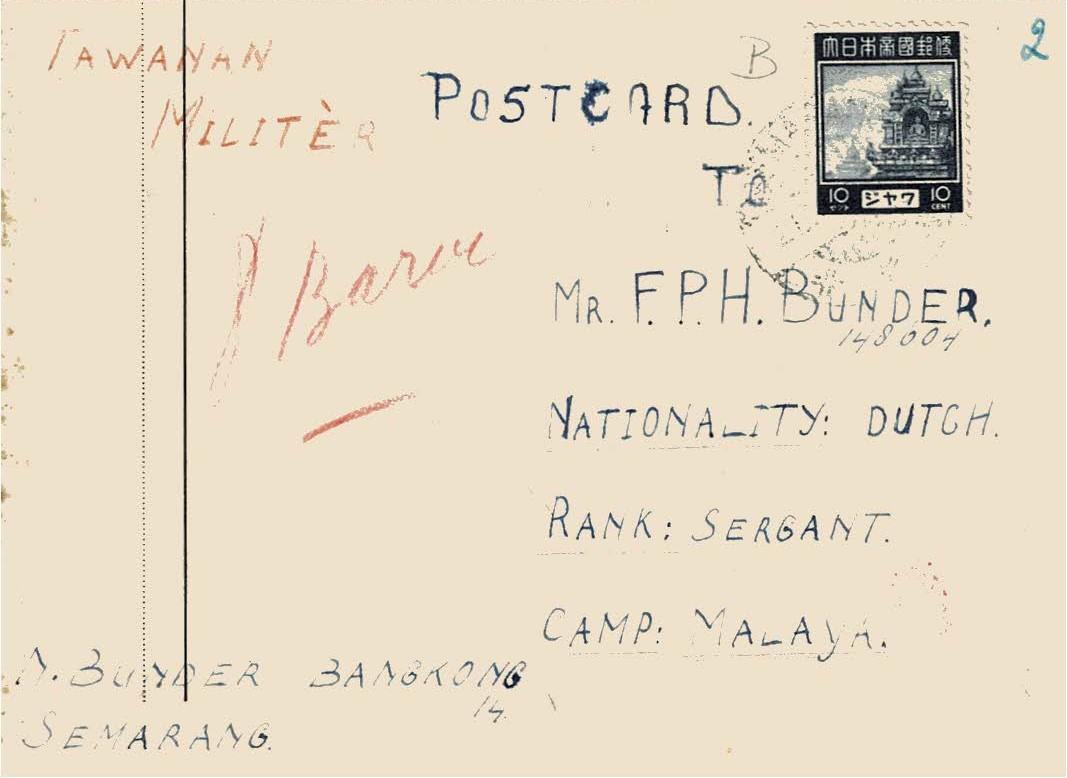 TAWANAN
MILITÈR
POSTCARD.
B
2
大日本帝國郵便
10 セント ジャワ 10 CENT
TO
Baru
MR. F.P.H. BUNDER.
148004
NATIONALITY: DUTCH.
RANK: SERGANT.
CAMP: MALAYA.
BUNDER BANGKONG
14.
SEMARANG.